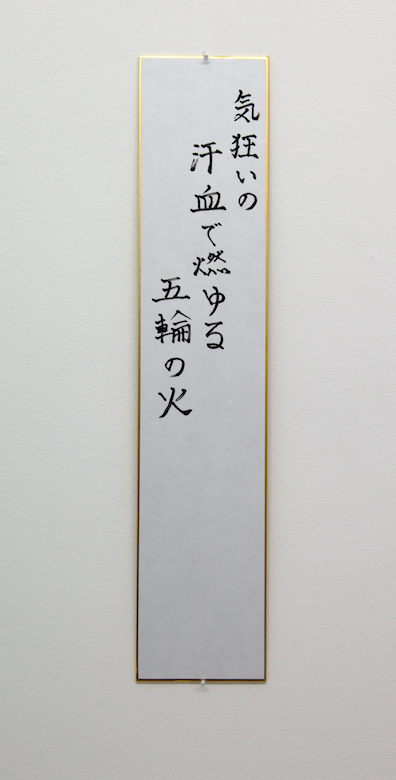 気狂いの
汗血で燃ゆる
五輪の火